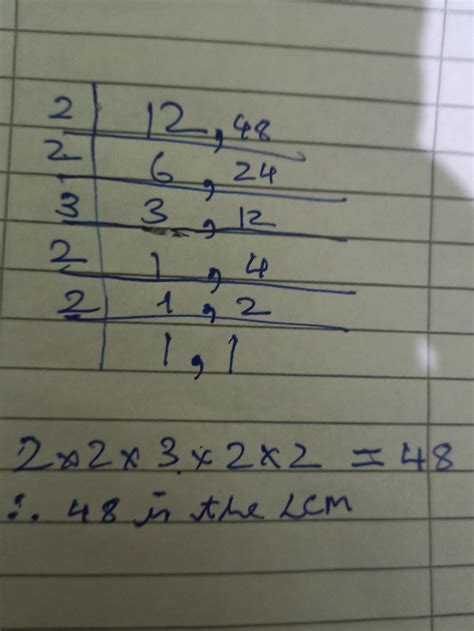 2 | 12, 48
2 | 6, 24
3 | 3, 12
2 | 1, 4
2 | 1, 2
| 1, 1
2×2×3×2×2 = 48
∴ 48 is the LCM